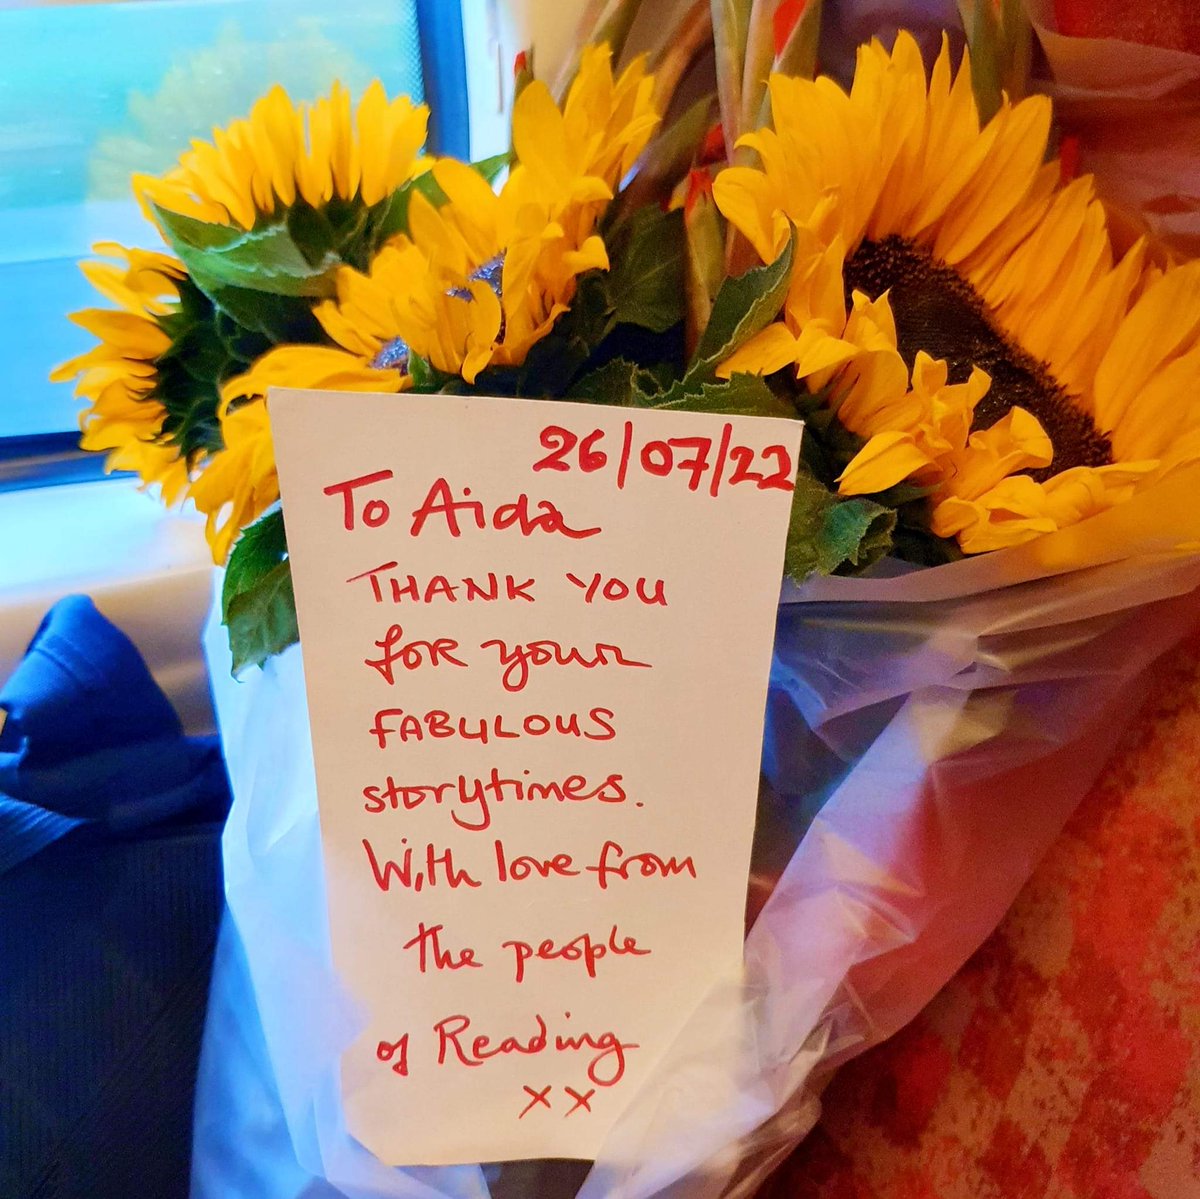 26/07/22
To Aida
THANK YOU
for your
FABULOUS
storytimes.
With love from
the people
of Reading
xx